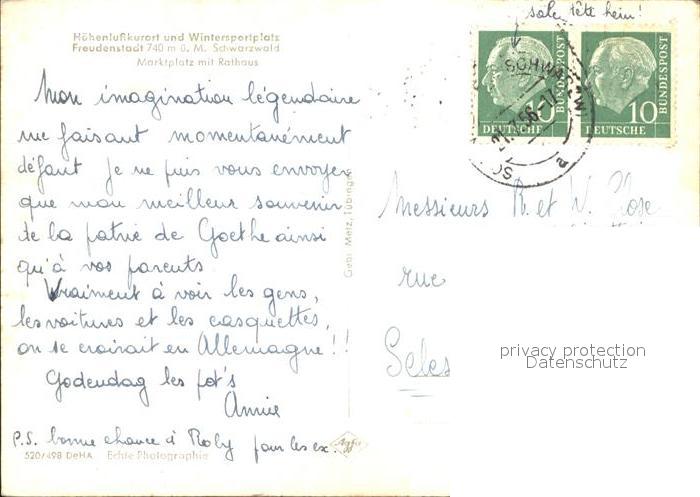 sale tête hein!
Höhenluftkurort und Wintersportplatz
Freudenstadt 740 m ü. M. Schwarzwald
Marktplatz mit Rathaus
Mon imagination légendaire
me faisant momentanément
défaut je ne puis vous envoyer
que mon meilleur souvenir
de la patrie de Goethe ainsi
qu'à vos parents.
Vraiment à voir les gens,
les voitures et les casquettes,
on se croirait en Allemagne!!
Godendag les pot's
Annie
P.S. bonne chance à Roby pour les ex.
520/498 DeHA Echte Photographie
Agfa
Gebr. Metz, Tübingen
DEUTSCHE BUNDESPOST
10
DEUTSCHE BUNDESPOST
Messieurs R. et W. Close
rue
Seles
privacy protection
Datenschutz